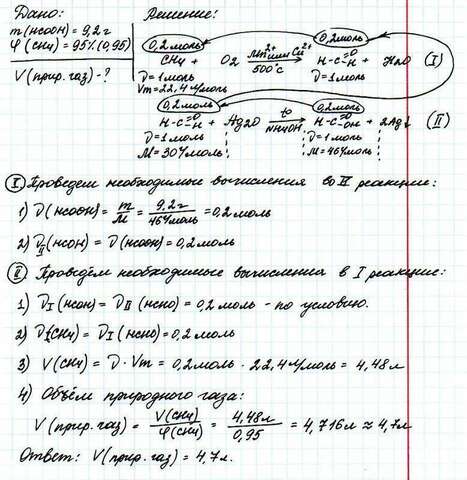 Дано: Решение:
m(нсоон)=9,2г
φ(CH4)=95%(0,95)
V(прир.газ)-?
0,2моль 0,2моль
CH4 + O2 Mn2+ или Cu2+ 500°C H-C=O-H + H2O (I)
ν=1моль ν=1моль
Vm=22,4 л/моль
0,2моль 0,2моль
H-C=O-H + Ag2O t° NH4OH H-C=O-OH + 2Ag↓ (II)
ν=1моль ν=1моль
M=30г/моль M=46г/моль
I Проведем необходимые вычисления во II реакции:
1) ν(нсоон)= m/M = 9,2г/46г/моль =0,2моль
2) νII(нсон)=ν(нсоон)=0,2моль
II Проведём необходимые вычисления в I реакции:
1) νI(нсон)=νII(нсно)=0,2 моль - по условию.
2) νI(CH4)=νI(нсно)=0,2моль
3) V(CH4)=ν·Vm=0,2моль·22,4 л/моль=4,48л
4) Объём природного газа:
V(прир.газ)= V(CH4)/φ(CH4) = 4,48л/0,95 =4,716л≈4,7л
Ответ: V(прир.газ)=4,7л.